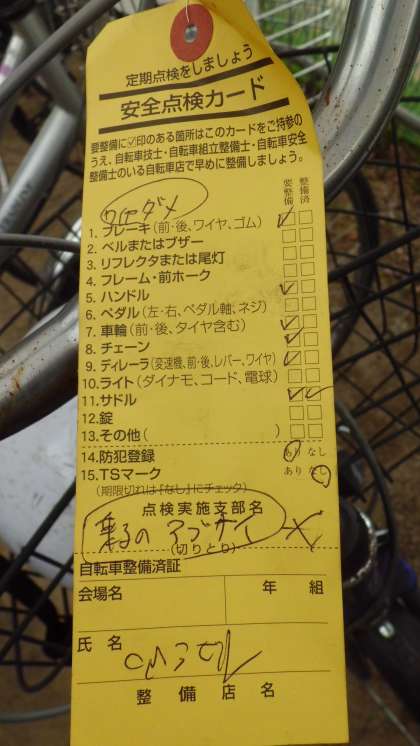 定期点検をしましょう
安全点検カード
要整備に☑印のある箇所はこのカードをご持参の
うえ、自転車技士・自転車組立整備士・自転車安全
整備士のいる自転車店で早めに整備しましょう。
要整備 整備済
1. ブレーキ(前・後、ワイヤ、ゴム)
2. ベルまたはブザー
3. リフレクタまたは尾灯
4. フレーム・前ホーク
5. ハンドル
6. ペダル(左・右、ペダル軸、ネジ)
7. 車輪(前・後、タイヤ含む)
8. チェーン
9. ディレーラ(変速機、前・後、レバー、ワイヤ)
10. ライト(ダイナモ、コード、電球)
11. サドル
12. 錠
13. その他( )
14. 防犯登録 あり なし
15. TSマーク あり なし
(期限切れは「なし」にチェック)
点検実施支部名
乗るの アブナイ
(切りとり)
自転車整備済証
会場名 年 組
氏名
整備店名